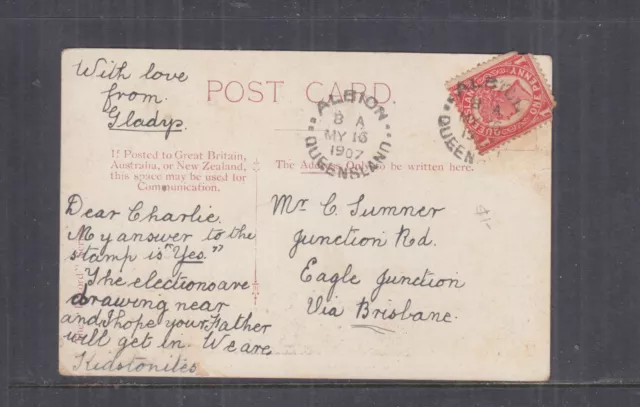 With love
from
Gladys.
POST CARD.
If Posted to Great Britain,
Australia, or New Zealand,
this space may be used for
Communication.
The Address Only to be written here.
ALBION
8 A
MY 16
1907
QUEENSLAND
ALBION
8 A
QUEENS
ONE PENNY
Dear Charlie.
My answer to the
stamp is "Yes."
The elections are
drawing near
and I hope your Father
will get in. We are
Kidstonites
Mr C. Sumner
Junction Rd.
Eagle Junction
Via Brisbane.